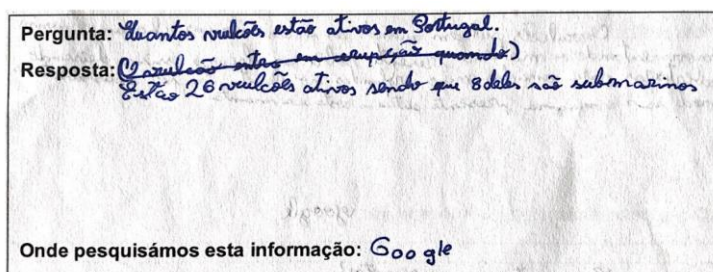 Pergunta: Quantos vulcões estão ativos em Portugal.
Resposta: (O vulcão entra em erupção quando)
Estão 26 vulcões ativos sendo que 8 deles são submarinos
Onde pesquisámos esta informação: Google